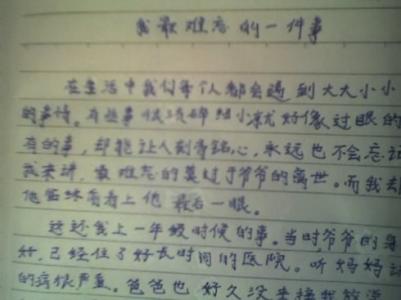 我最难忘的一件事
在生活中我们每个人都会遇到大大小小
的事情。有些事很琐碎细小就好像过眼的
有的事,却能让人刻骨铭心,永远也不会忘记
我来讲,最难忘的莫过于爷爷的离世。而我却
他始终看着上他 最后一眼。
这还我上一年级时候的事。当时爷爷的身
好,已经住了好长时间的医院。听妈妈说
的病很严重。爸爸也好久没来接我放学